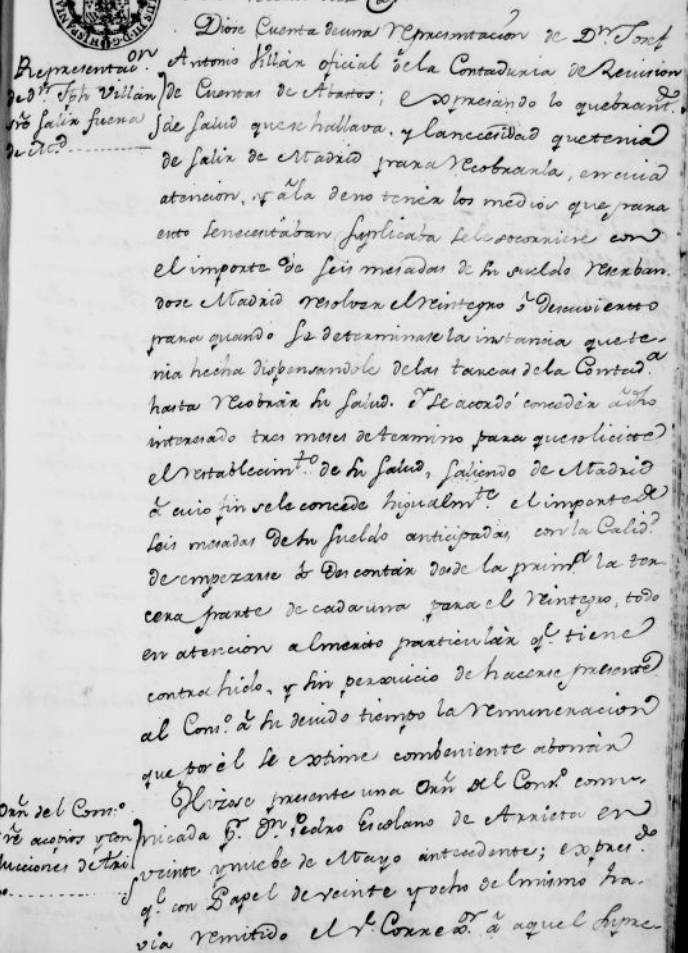 Representac.on
de d.n Jph Villán
sre salir fuera
de M.d
Diose Cuenta de una representación de D.n Josef
Antonio Villán oficial de la Contaduria de Revision
de Cuentas de Abastos; expresando lo quebrant.do
de salud que se hallava, y la necesidad que tenia
de salir de Madrid para recobrarla, en cuia
atencion, y a la de no tener los medios que para
esto se necesitában suplicaba se le socorriese con
el importe de seis mesadas de su sueldo reserban-
dose Madrid resolver el reintegro ó descuvierto
para quando se determinase la instancia que te-
nia hecha dispensandole de las tareas de la Contad.a
hasta recobrár su salud. Y se acordó concedér a dho
interesado tres meses de termino para que solicite
el restablecim.to de su salud, saliendo de Madrid
á cuio fin se le concede higualm.te el importe de
seis mesadas de su sueldo anticipadas, con la Calid.d
de empezarse á Descontár desde la prim.a la ter-
cera parte de cada una para el reintegro, todo
en atencion al merito particulár q.e tiene
contrahido, y sin perxuicio de hacerse presente
al Cons.o á su devido tiempo la remuneracion
que por él se extime combeniente abonár
Orn del Cons.o
sre acopios y con
ducciones de tri
go
Hizose presente una Orn del Cons.o comu-
nicada p.r Dn Pedro Escolano de Arrieta en
veinte y nuebe de Mayo antecedente; expres.do
q.e con Papel de veinte y ocho del mismo ha-
via remitido el s.r Correx.or á aquel supre-